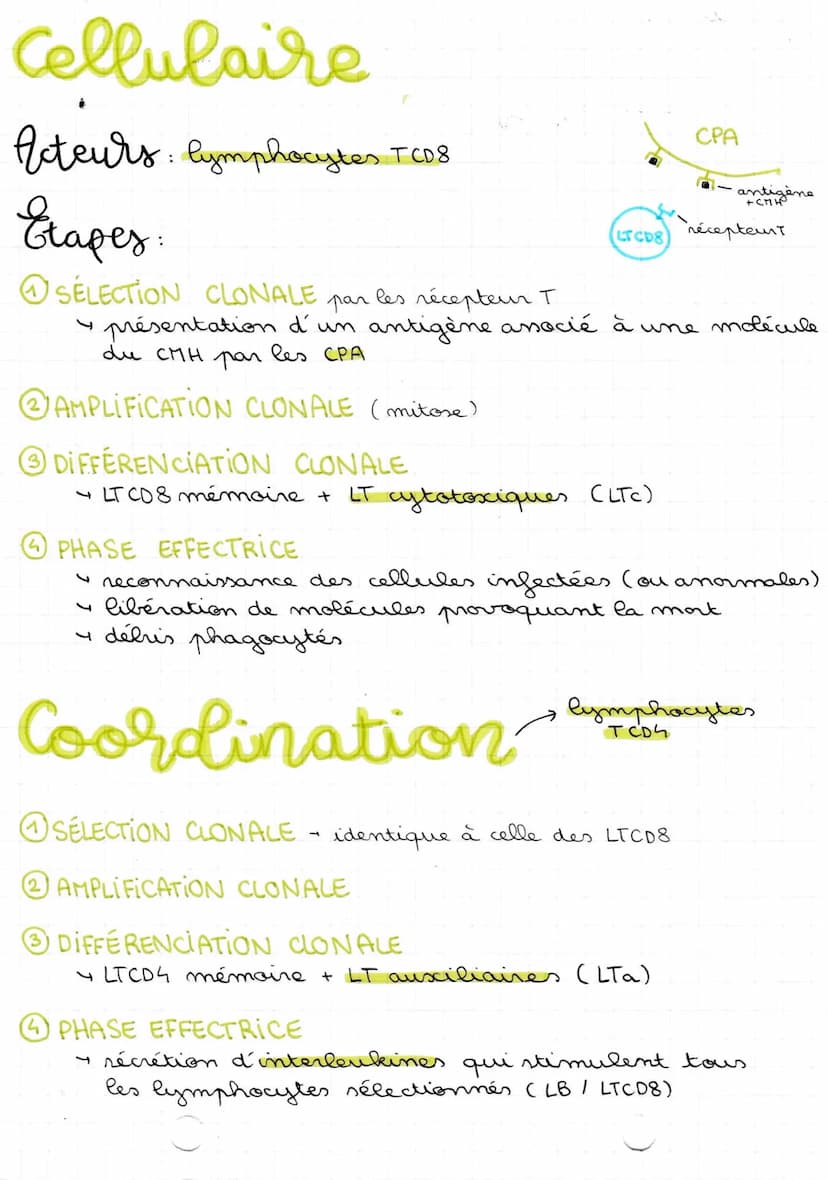 Cellulaire
Acteurs : lymphocytes TCD8
CPA
antigène
+ CMH
LTCD8
récepteur T
Étapes :
① SÉLECTION CLONALE par les récepteur T
↳ présentation d'un antigène associé à une molécule
du CMH par les CPA
② AMPLIFICATION CLONALE (mitose)
③ DIFFÉRENCIATION CLONALE
↳ LTCD8 mémoire + LT cytotoxiques (LTc)
④ PHASE EFFECTRICE
↳ reconnaissance des cellules infectées (ou anormales)
↳ libération de molécules provoquant la mort
↳ débris phagocytés
Coordination → lymphocytes
TCD4
① SÉLECTION CLONALE → identique à celle des LTCD8
② AMPLIFICATION CLONALE
③ DIFFÉRENCIATION CLONALE
↳ LTCD4 mémoire + LT auxiliaires (LTa)
④ PHASE EFFECTRICE
→ sécrétion d'interleukines qui stimulent tous
les lymphocytes sélectionnés (LB / LTCD8)